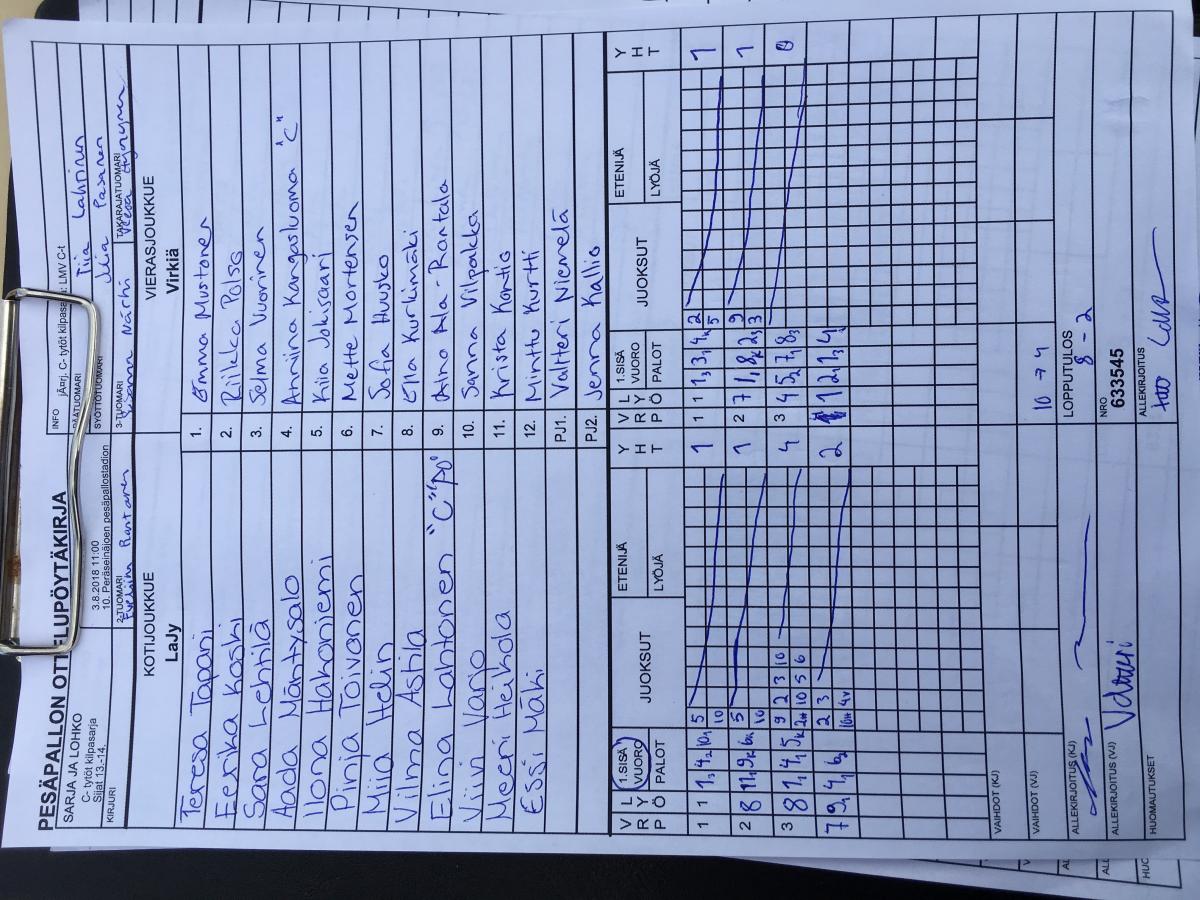 PESÄPALLON OTTELUPÖYTÄKIRJA
SARJA JA LOHKO
C- tytöt kilpasarja
Sijat 13.-14.
3.8.2018 11:00
10. Peräseinäjoen pesäpallostadion
INFO järj. C- tytöt kilpasarja: LMV C-t
PÄÄTUOMARI Tiia Lahtinen
SYÖTTÖTUOMARI Pasanen
KIRJURI
2-TUOMARI Rantanen
3-TUOMARI Närhi
TAKARAJATUOMARI Veera
KOTIJOUKKUE
LaJy
VIERASJOUKKUE
Virkiä
Teresa Tapani 1. Emma Mustonen
Eerika Koski 2. Riikka Palsa
Sara Lehtilä 3. Selma Vuorinen
Aada Mäntysalo 4. Anniina Kangasluoma "C"
Ilona Hakoniemi 5. Kiia Jokisaari
Pinja Toivonen 6. Mette Mortensen
Tiiia Helin 7. Sofia Huusko
Vilma Astila 8. Ella Kurkimäki
Elina Lahtonen "C" "po" 9. Aino Ala-Rantala
Viivi Varjo 10. Sanna Vilpakka
Meeri Heikola 11. Krista Kontio
Essi Mäki 12. Minttu Kurtti
PJ1. Valtteri Niemelä
PJ2. Jenna Kallio
V R P L Y Ö 1.SISÄ VUORO PALOT JUOKSUT ETENIJÄ LYÖJÄ Y H T V R P L Y Ö 1.SISÄ VUORO PALOT JUOKSUT ETENIJÄ LYÖJÄ Y H T
1 1 1₃ 4₂ 10₁ 5 1 1 1 1₃ 3₁ 4ₖ 2 1
10 5
2 8 11₁ 9ₖ 6ₖ 5 1 2 7 1₁ 8ₖ 2₃ 9 1
10 3
3 8 1₁ 4₁ 5ₖ 9 2 3 10 4 3 4 5₂ 7₁ 8₃ 0
10 5 6
7 9₁ 4₁ 6₂ 2 3 2 1 2₁ 1₃ 4₁
4v
VAIHDOT (KJ)
VAIHDOT (VJ) 10 → 4
ALLEKIRJOITUS (KJ)
LOPPUTULOS
8 - 2
ALLEKIRJOITUS (VJ)
NRO
633545
HUOMAUTUKSET
ALLEKIRJOITUS